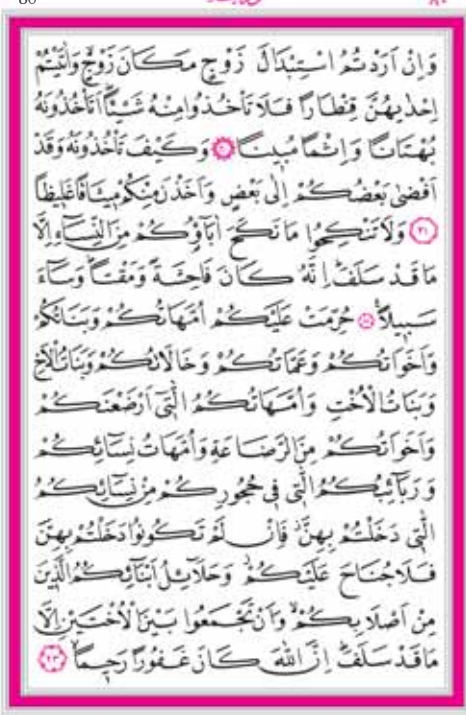 80
وَاِنْ اَرَدْتُمُ اسْتِبْدَالَ زَوْجٍ مَكَانَ زَوْجٍۙ وَاٰتَيْتُمْ
اِحْدٰيهُنَّ قِنْطَارًا فَلَا تَأْخُذُوا مِنْهُ شَيْـًٔاۜ اَتَأْخُذُونَهُ
بُهْتَانًا وَاِثْمًا مُبِينًا ﴿٢٠﴾ وَكَيْفَ تَأْخُذُونَهُ وَقَدْ
اَفْضٰى بَعْضُكُمْ اِلٰى بَعْضٍ وَاَخَذْنَ مِنْكُمْ مِيثَاقًا غَلِيظًا
﴿٢١﴾ وَلَا تَنْكِحُوا مَا نَكَحَ اٰبَٓاؤُ۬كُمْ مِنَ النِّسَٓاءِ اِلَّا
مَا قَدْ سَلَفَۜ اِنَّهُ كَانَ فَاحِشَةً وَمَقْتًاۜ وَسَٓاءَ
سَبِيلًا ﴿٢٢﴾ حُرِّمَتْ عَلَيْكُمْ اُمَّهَاتُكُمْ وَبَنَاتُكُمْ
وَاَخَوَاتُكُمْ وَعَمَّاتُكُمْ وَخَالَاتُكُمْ وَبَنَاتُ الْاَخِ
وَبَنَاتُ الْاُخْتِ وَاُمَّهَاتُكُمُ الّٰت۪ٓي اَرْضَعْنَكُمْ
وَاَخَوَاتُكُمْ مِنَ الرَّضَاعَةِ وَاُمَّهَاتُ نِسَٓائِكُمْ
وَرَبَٓائِبُكُمُ الّٰتِي فِي حُجُورِكُمْ مِنْ نِسَٓائِكُمُ
الّٰتِي دَخَلْتُمْ بِهِنَّۘ فَاِنْ لَمْ تَكُونُوا دَخَلْتُمْ بِهِنَّ
فَلَا جُنَاحَ عَلَيْكُمْۘ وَحَلَٓائِلُ اَبْنَٓائِكُمُ الَّذِينَ
مِنْ اَصْلَابِكُمْۙ وَاَنْ تَجْمَعُوا بَيْنَ الْاُخْتَيْنِ اِلَّا
مَا قَدْ سَلَفَۜ اِنَّ اللّٰهَ كَانَ غَفُورًا رَحِيمًا ﴿٢٣﴾